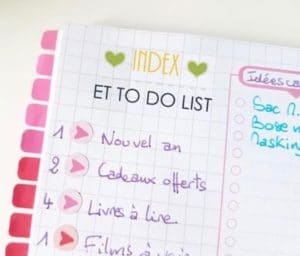 INDEX
ET TO DO LIST
1 Nouvel an
2 Cadeaux offerts
4 Livres à lire
1 Films à
Idées
Sac